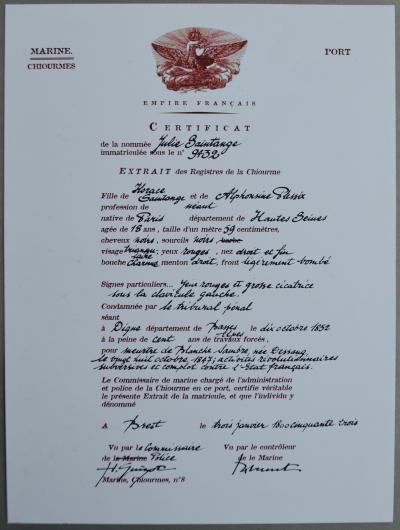 MARINE.
CHIOURMES
PORT
EMPIRE FRANÇAIS
CERTIFICAT
de la nommée Julie Saintange
immatriculée sous le n° 9432
EXTRAIT des Registres de la Chiourme
Fille de Horace Saintange et de Alphonsine Plissix
profession de néant
native de Paris département de Hautes Seines
agée de 18 ans, taille d'un mètre 59 centimètres,
cheveux noirs, sourcils noirs
visage triangulaire yeux rouges, nez droit et fin
bouche charnue menton droit, front légèrement bombé
Signes particuliers... Yeux rouges et grosse cicatrice
sous la clavicule gauche.
Condamnée par le tribunal pénal
séant
à Digne département de Basses Alpes le dix octobre 1852
à la peine de cent ans de travaux forcés,
pour meurtre de Blanche Sambre, née Dessang,
le vingt huit octobre 1847; activités révolutionnaires
subversives et complot contre l'État français.
Le Commissaire de marine chargé de l'administration
et police de la Chiourme en ce port, certifie véritable
le présente Extrait de la matricule, et que l'individu y
dénommé
A Brest le trois janvier 1800 cinquante trois
Vu par le Commissaire Vu par le contrôleur
de la Marine Police de le Marine
Marine, Chiourmes, n°8